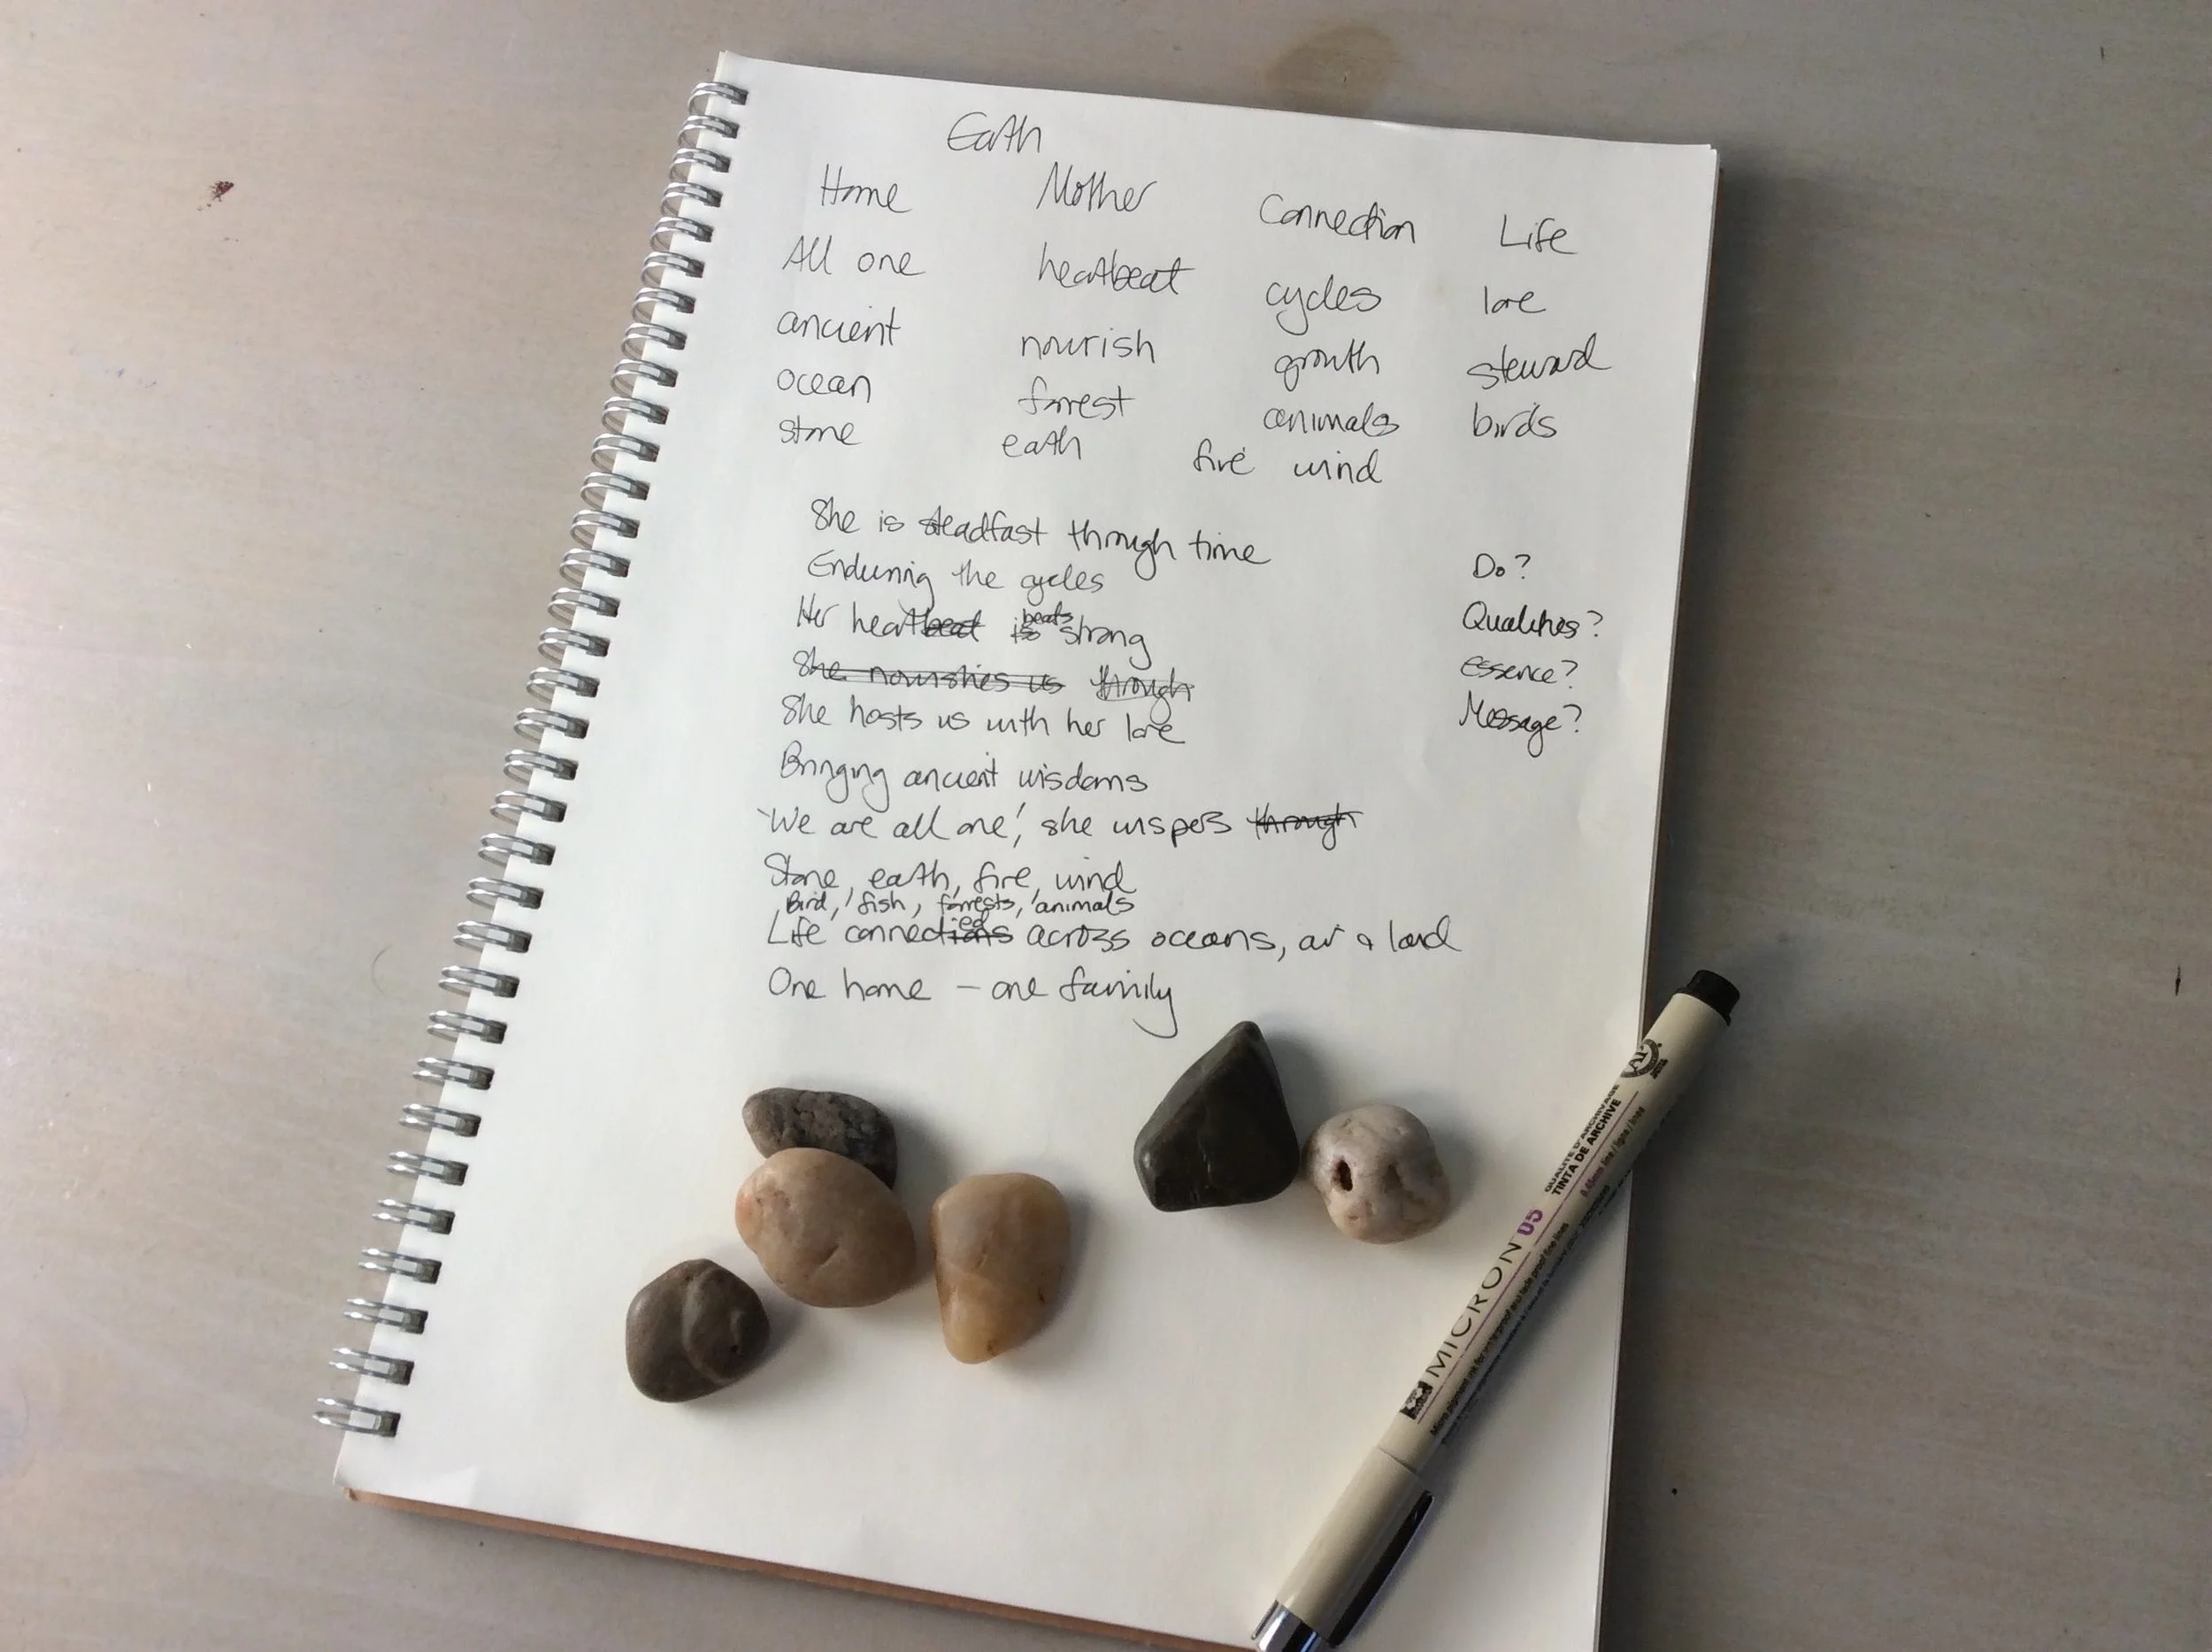 Earth
Home Mother Connection Life
All one heartbeat cycles love
ancient nourish growth steward
ocean forrest animals birds
stone earth fire wind
She is steadfast through time
Enduring the cycles
Her heartbeat is beats strong
She nourishes us through
She hosts us with her love
Bringing ancient wisdoms
'We are all one', she wispers through
Stone, earth, fire, wind
Bird, fish, forrests, animals
Life connections ed across oceans, air & land
One home – one family
Do?
Qualities?
essence?
Message?
MICRON 05
QUALITE D'ARCHIVAGE
TINTA DE ARCHIVE